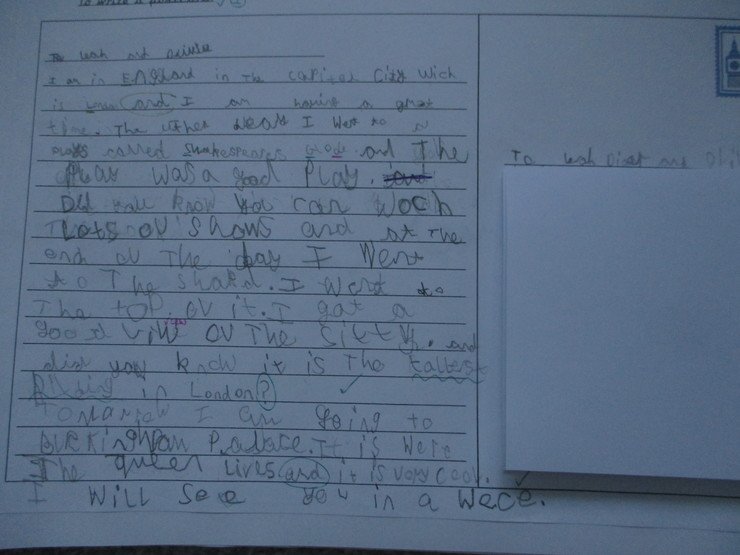 To write a
To leah and
I am in England in The capital City wich
is London and I am having a great
time. The uther Day I Went to a
called Shakespeares Globe and The
Play was a good Play.
Did you know you can woch
Lots ov shows and at The
end ov The day I Went
to The shard. I went to
The top ov it. I got a
good view ov The sitty. and
did you know it is The tallest
in London?
Tomarow I am going to
Buckingham Palace. It is Were
The queen Lives and it is very cool.
I will see you in a wece.
To leah